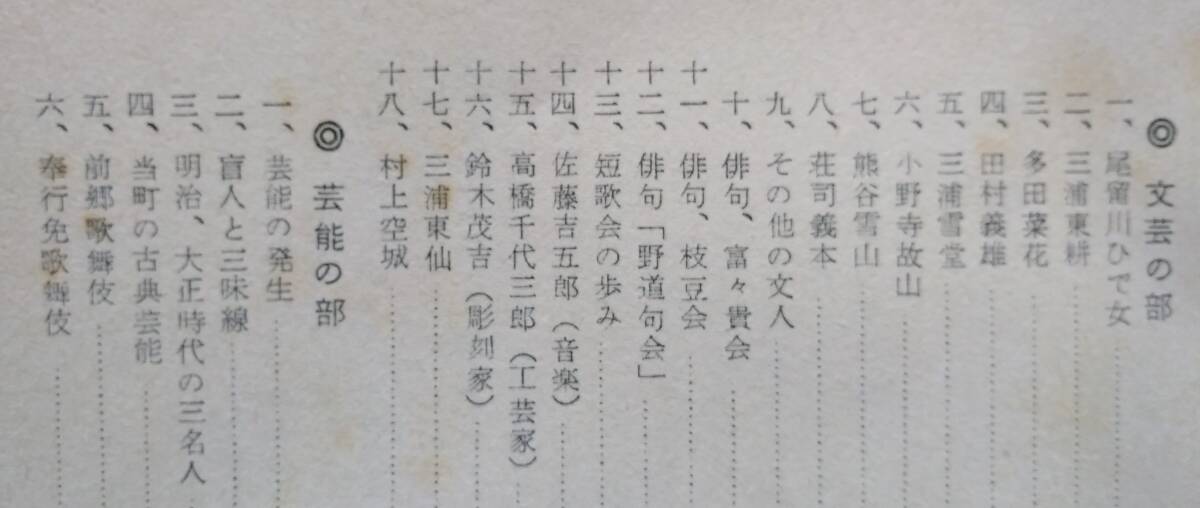 ◎ 文芸の部
一、尾留川ひで女
二、三浦東耕
三、多田菜花
四、田村義雄
五、三浦雪堂
六、小野寺故山
七、熊谷雪山
八、荘司義本
九、その他の文人
十、俳句、富々貴会
十一、俳句、枝豆会
十二、俳句「野道句会」
十三、短歌会の歩み
十四、佐藤吉五郎（音楽）
十五、高橋千代三郎（工芸家）
十六、鈴木茂吉（彫刻家）
十七、三浦東仙
十八、村上空城
◎ 芸能の部
一、芸能の発生
二、盲人と三味線
三、明治、大正時代の三名人
四、当町の古典芸能
五、前郷歌舞伎
六、奉行免歌舞伎